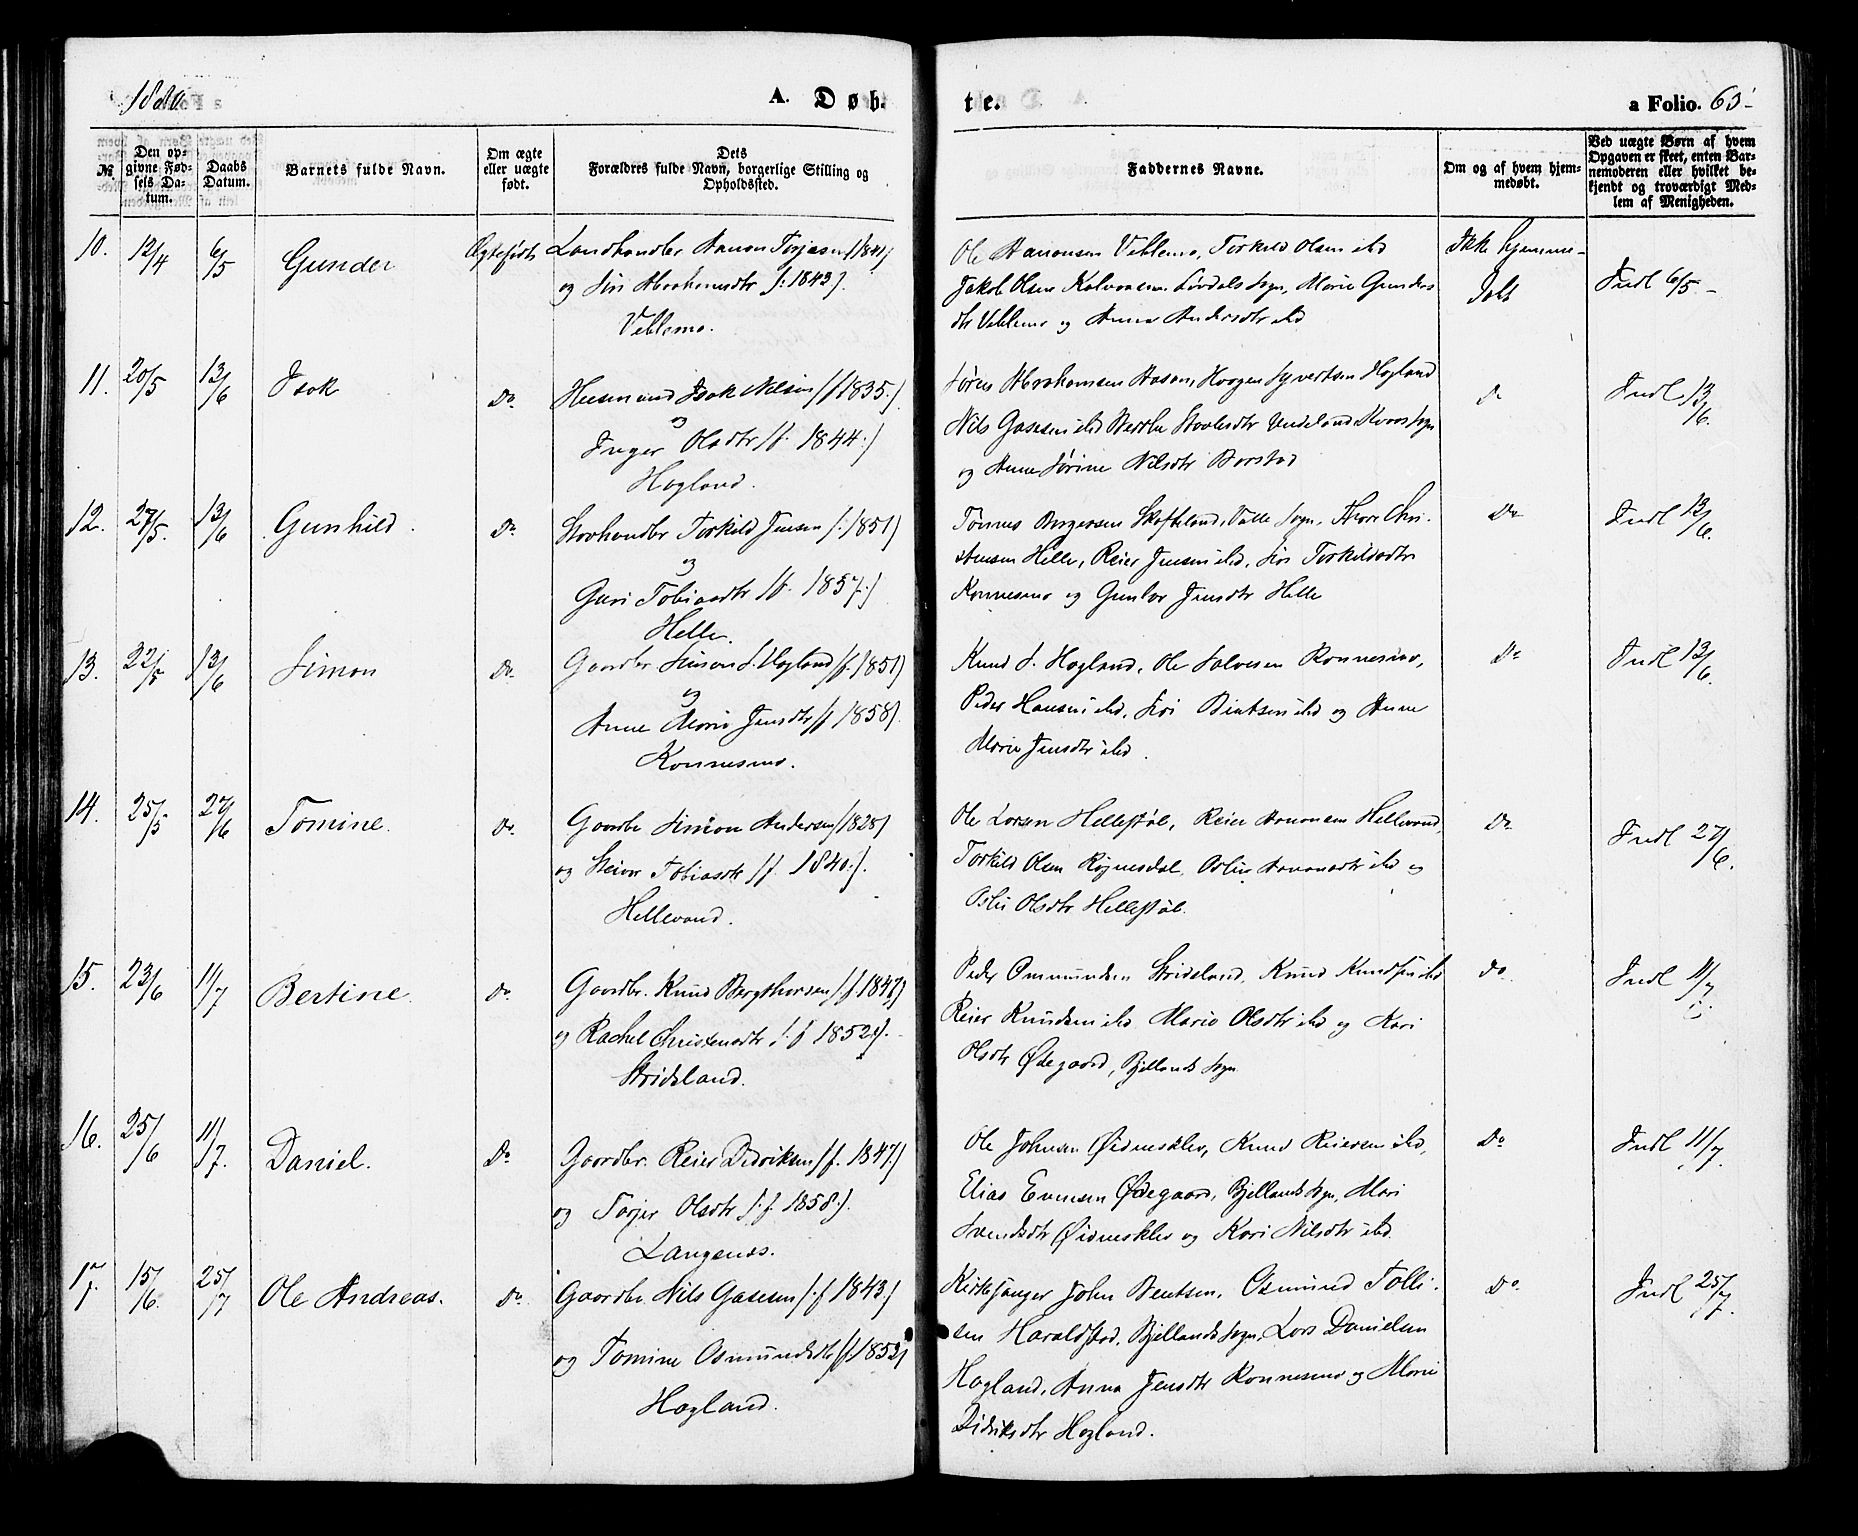 1880.
A. Døb-
te.
a Folio. 63
№
Den op-
givne Fød-
sels Da-
tum.
Daabs
Datum.
Barnets fulde Navn.
Om ægte
eller uægte
født.
Dets
Forældres fulde Navn, borgerlige Stilling og
Opholdssted.
Faddernes Navne.
Om og af hvem hjem-
medøbt.
Ved uægte Børn af hvem
Opgaven er skeet, enten Bar-
nemoderen eller hvilket be-
kjendt og troværdigt Med-
lem af Menigheden.
10. 12/4 6/5 Gunder Ægtefødt
Landhandler Aanon Torjesen
og Siri Abrahamsdtr f. 1843).
Veblemo.
Ole Aanonsen Veblemo, Torkild Olsen ibd
Jakob Olsen Sogn, Marie Gunders
dtr Veblemo og Anna Andersdtr ibd
Ikke hjemme-
døbt
Indl 6/5.-
11. 20/5 13/6 Isak Do.
Husmand Isak Nilsen (f 1835.)
og
Inger Olsdtr (f. 1844.)
Hogland.
Søren Abrahamsen Aasen, Haagen Syvertsen Hogland
Nils Gasesen ibd Sogn
og Anne Sørine Nilsdtr
Do
Indl 13/6.
12. 27/5. 13/6 Gunhild. Do.
Torkild Jensen f. 1851)
og
Guri Tobiasdtr (f. 1857.)
Helle.
Tønnes Bergersen Valle Sogn, Chri-
stensen Helle, Reier Jensen ibd, Siri Torkildsdtr
Konnesmo og Gunlor Jensdtr Helle
Do
Indl 13/6.
13. 22/5 13/6 Simon Do.
Gaardbr Simon S. Hogland (f. 1851)
og
Anne Marie Jensdtr (f 1858).
Konnesmo.
Knud S. Hogland, Ole Salvesen Konnesmo,
Peder Hansen ibd, Siri Bentsen ibd og Anne
Marie Jensdtr ibd.
Do
Indl 13/6.
14. 25/5 27/6 Tomine. Do.
Gaardbr Simon Andersen (1828)
og Tobiasdtr (f. 1840.).
Hellevand.
Ole Larsen Hellestøl, Reier Aanonsen Hellevand,
Torkild Olsen Røynesdal, Aslin Aanonsdtr ibd og
Olsdtr Hellestøl.
Do
Indl 27/6.
15. 23/6 11/7 Bertine. Do.
Gaardbr. Knud Bergthorsen (f. 1847)
og Rachel Christensdtr (f 1852).
Stridsland.
Peder Omundsen Stridsland, Knud Knudsen ibd
Reier Knudsen ibd Marie Olsdtr ibd og Kari
Olsdtr Ødegaard, Bjellands Sogn
Do
Indl 11/7.
16. 25/6 11/7. Daniel. Do
Gaardbr. Reier Didriksen (f. 1847.)
og Torjer Olsdtr (f. 1858.).
Langenes.
Ole Johnsen Øidnesklev, Knud Reiersen ibd,
Elias Evensen Ødegaard, Bjellands Sogn, Mari
Svendsdtr Øidnesklev og Kari Nilsdtr ibd.
Do
Indl 11/7.
17. 15/6. 25/7 Ole Andreas. Do.
Gaardbr. Nils Gasesen (f 1843.)
og Tomine Osmundsdtr (f. 1852)
Hogland.
Kirkesanger John Bentsen, Osmund Tolli-
sen Haraldstad, Bjellands Sogn, Lars Danielsen
Hogland, Anna Jensdtr Konnesmo og Marie
Didriksdtr Hogland.
Do.
Indl 25/7.